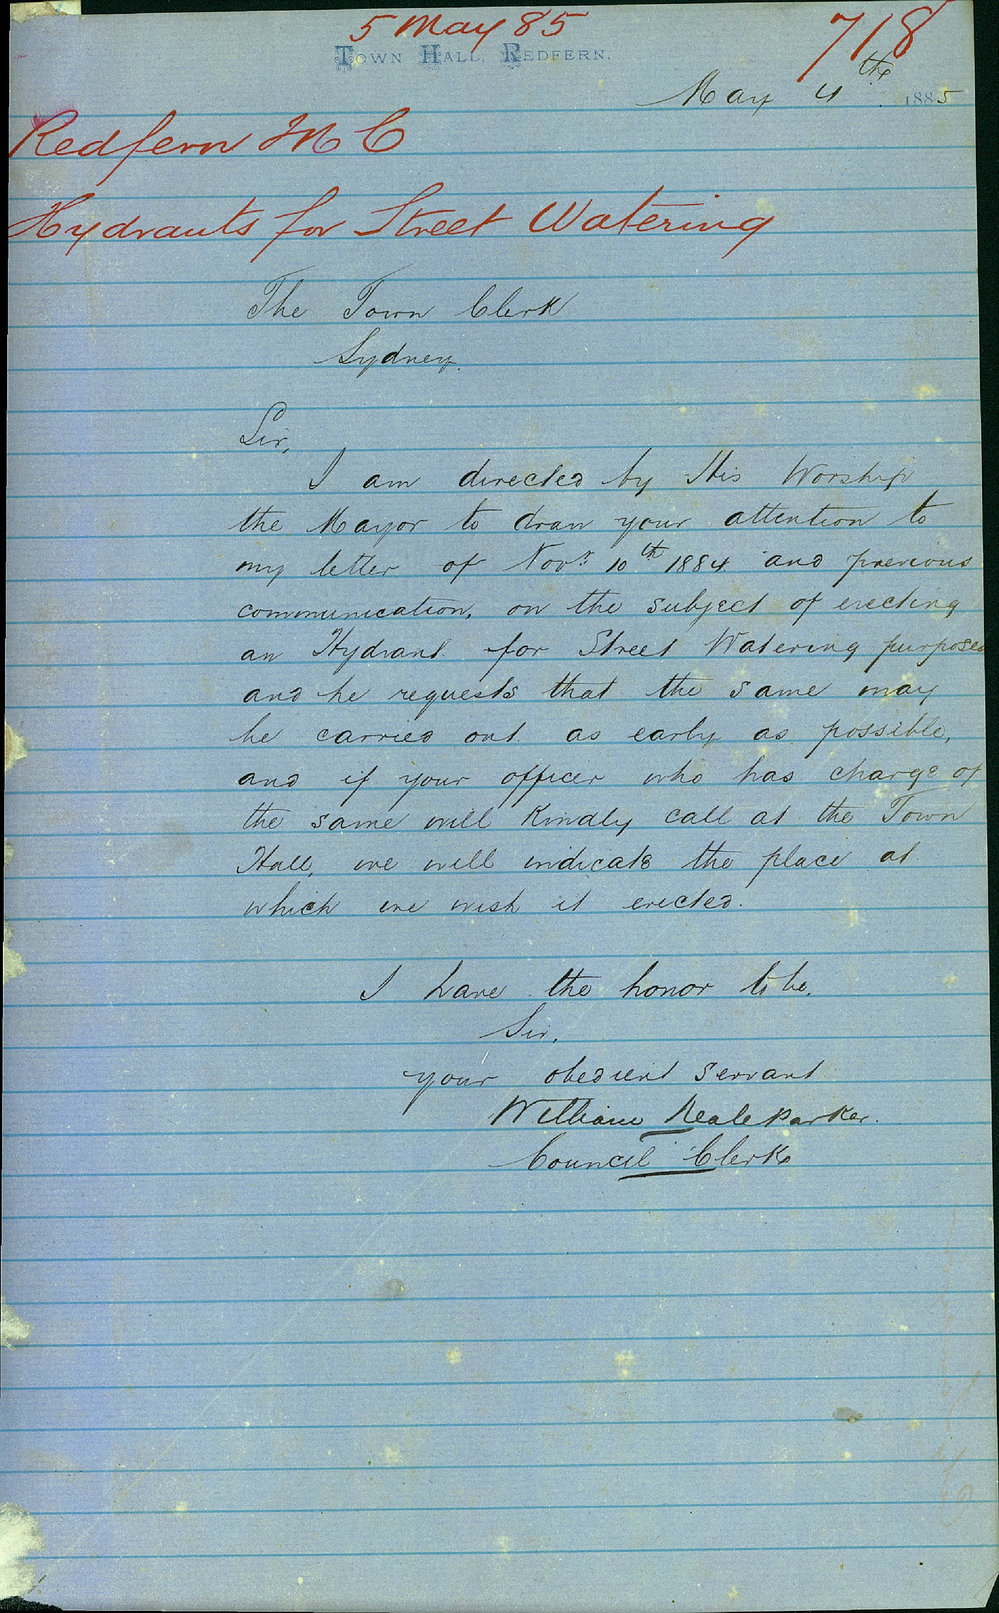 5 May 85
718
TOWN HALL, REDFERN.
May 4th 1885
Redfern M C
Hydrants for Street Watering
The Town Clerk
Sydney.
Sir,
I am directed by His Worship
the Mayor to draw your attention to
my letter of Novr 10th 1884 and previous
communication, on the subject of erecting
an Hydrant for Street Watering purposes
and he requests that the same may
be carried out as early as possible,
and if your officer who has charge of
the same will kindly call at the Town
Hall, we will indicate the place at
which we wish it erected.
I have the honor to be,
Sir,
your obedient servant
William Neale Parker.
Council Clerk